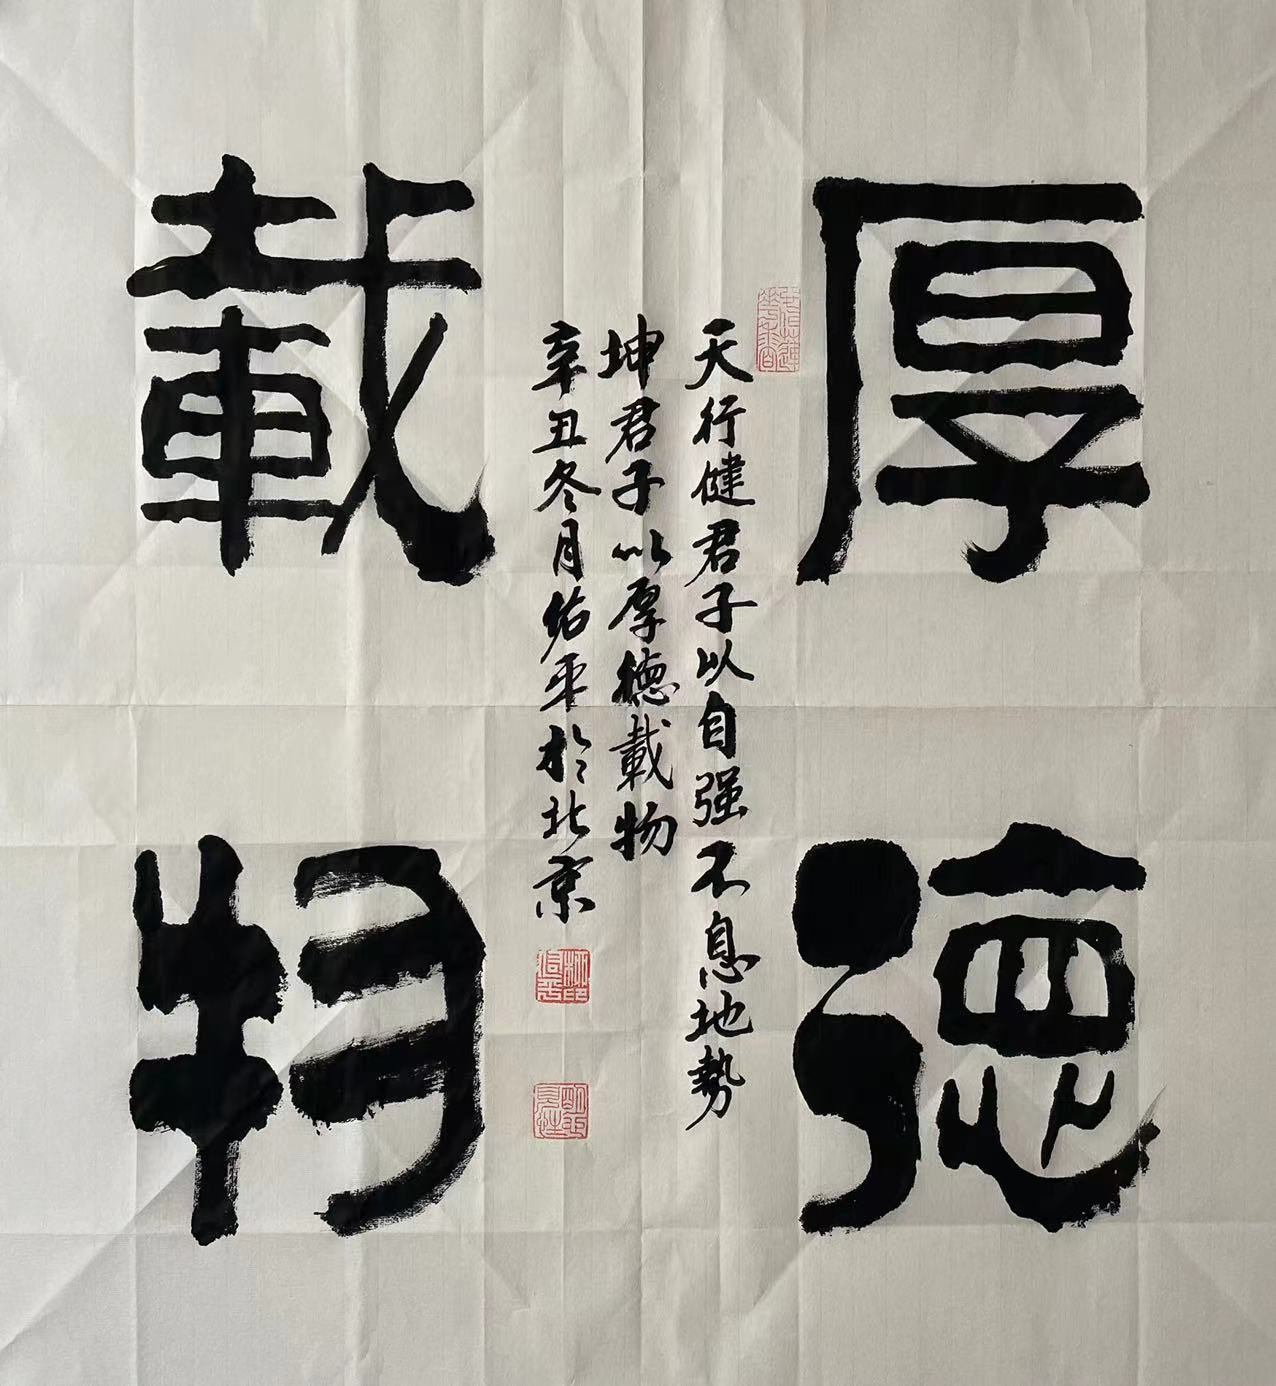 厚德
載物
天行健君子以自强不息地勢
坤君子以厚德載物
辛丑冬月佑平於北京